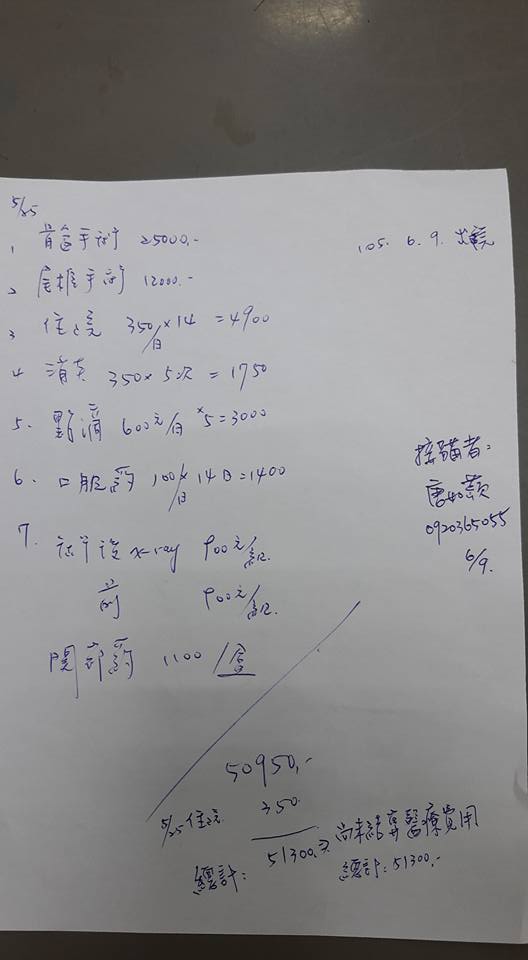 5/25
1. 骨盆手術 25000.-
105. 6. 9.
2. 尾椎手術 12000.-
3 住院 350/日 x 14 = 4900
4 消炎 350 x 5次 = 1750
5. 點滴 600元/日 x 5 = 3000
6. 口服药 100/日 x 14日 = 1400
接瞞者:
唐如蘋
0920365055
6/9.
7. 術後 x-ray 900元/組.
前 900元/組.
関節药 1100 /盒
50950.-
5/25 住院 350.
總計: 51300.元
尚未結算醫療費用
總計: 51300.-